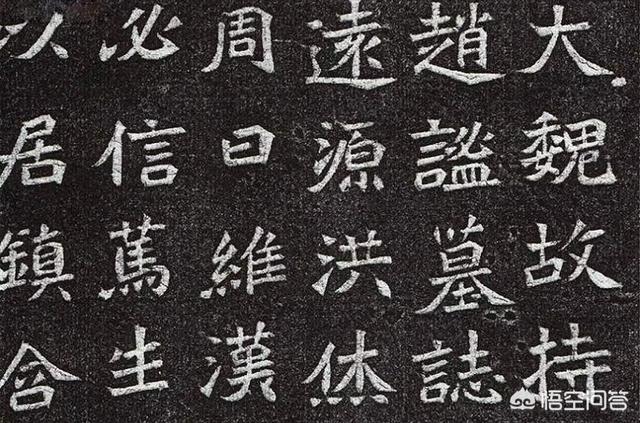 大魏故持
趙謐墓誌
遠源洪烋
周曰維漢
必信篤生
以居鎮含
悟空问答